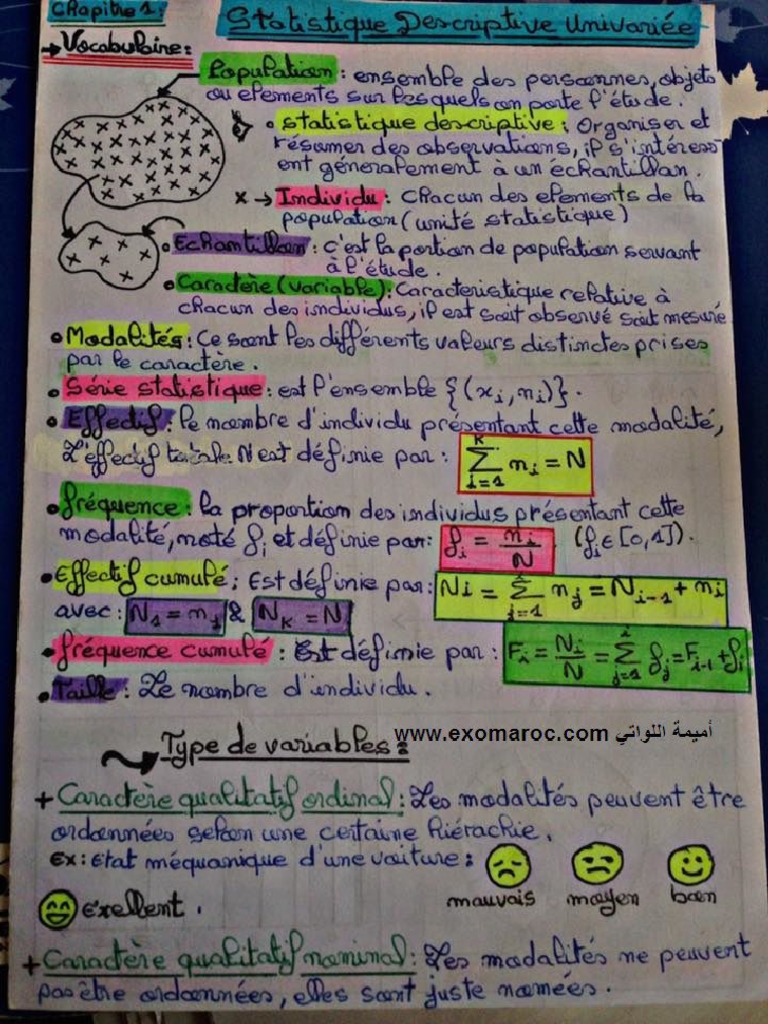 Chapitre 1:
Statistique Descriptive Univariée
→Vocabulaire:
Population: ensemble des personnes, objets
ou elements sur lesquels on porte l'étude.
• Statistique descriptive: Organiser et
résumer des observations, il s'intéress
ent génerálement à un échantillon.
x → Individu: chacun des elements de la
population (unité statistique)
• Echantillon: c'est la portion de population servant
à l'étude.
• Caractère (variable): Caracteristique relative à
chacun des individus, il est soit observé soit mesuré
• Modalités: Ce sont les différents valeurs distinctes prises
par le caractère.
• Série statistique: est l'ensemble {(xi, ni)}.
• Effectif: le nombre d'individu présentant cette modalité,
L'effectif totale N est définie par: ∑_{i=1}^{k} ni = N
• fréquence: la proportion des individus présentant cette
modalité, noté fi et définie par: fi = ni/N (fi ∈ [0,1]).
• Effectif cumulé: Est définie par: Ni = ∑_{j=1}^{i} nj = Ni-1 + ni
avec: N1 = n1 & NK = N
• fréquence cumulé: Est définie par: Fi = Ni/N = ∑_{j=1}^{i} fj = Fi-1 + fi
• Taille: Le nombre d'individu.
www.exomaroc.com أميمة اللواتي
Type de variables:
+ Caractère qualitatif ordinal: Les modalités peuvent être
ordonnées selon une certaine hiérachie.
Ex: Etat méquanique d'une voiture:
mauvais moyen bon
Exellent.
+ Caractère qualitatif nominal: Les modalités ne peuvent
pas être ordonnées, elles sont juste nomées.